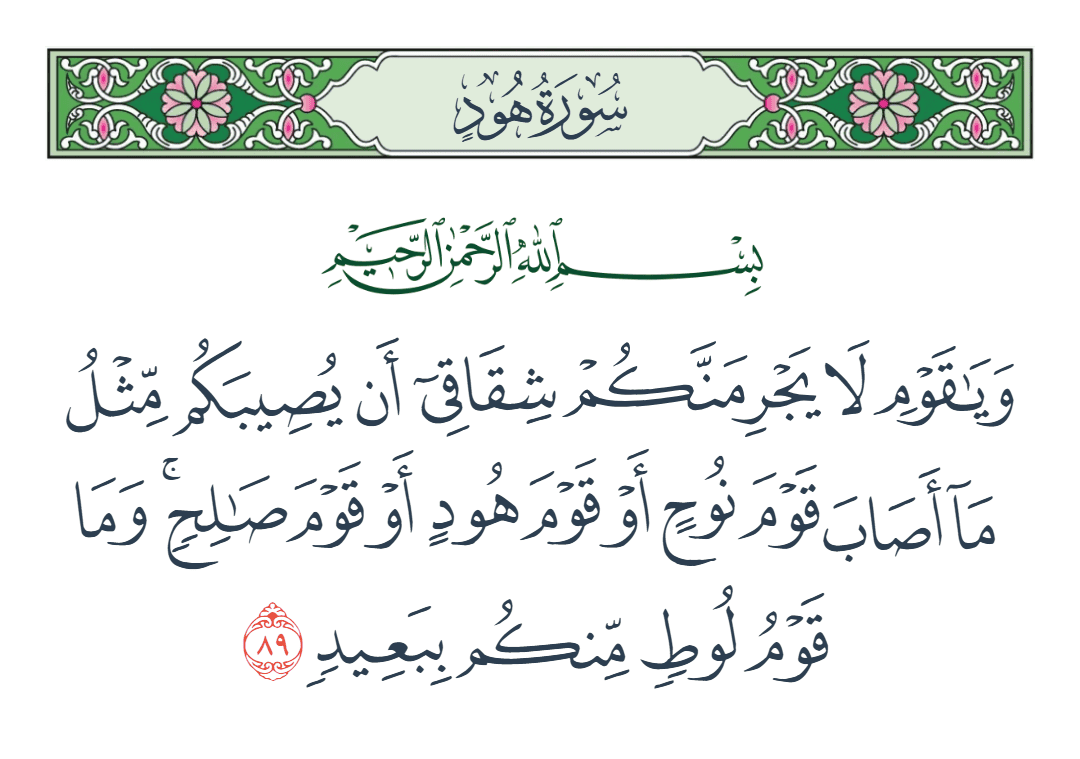 سُورَةُ هُودٍ
بِسْمِ ٱللَّهِ ٱلرَّحْمَٰنِ ٱلرَّحِيمِ
وَيَٰقَوْمِ لَا يَجْرِمَنَّكُمْ شِقَاقِىٓ أَن يُصِيبَكُم مِّثْلُ
مَآ أَصَابَ قَوْمَ نُوحٍ أَوْ قَوْمَ هُودٍ أَوْ قَوْمَ صَٰلِحٍ ۚ وَمَا
قَوْمُ لُوطٍ مِّنكُم بِبَعِيدٍ ٨٩